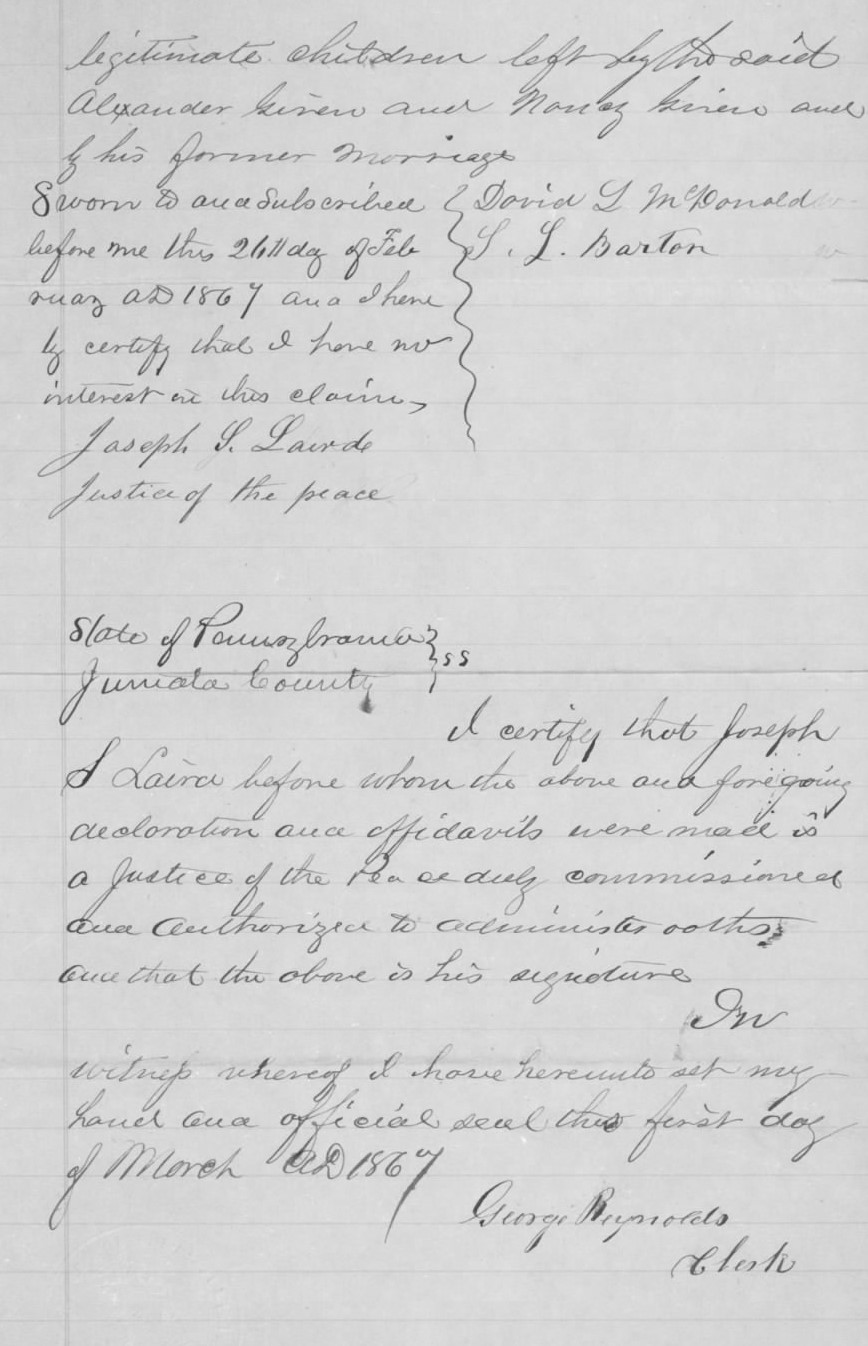 legitimate children left by the said
Alexander Given and Nancy Given and
by his former marriage
Sworn to and Subscribed
before me this 26th day of Feb
ruay AD 1867 and I here
by certify that I have no
interest in this claim,
Joseph S. Laird
Justice of the peace
David L McDonald
S. L. Barton
State of Pennsylvania
Juniata County
} SS
I certify that Joseph
S Laird before whom the above and foregoing
declaration and affidavits were made is
a Justice of the Peace duly commissioned
and Authorized to administer oaths
and that the above is his signature
In
witness whereof I have hereunto set my
hand and official seal this first day
of March AD 1867
George Reynolds
Clerk